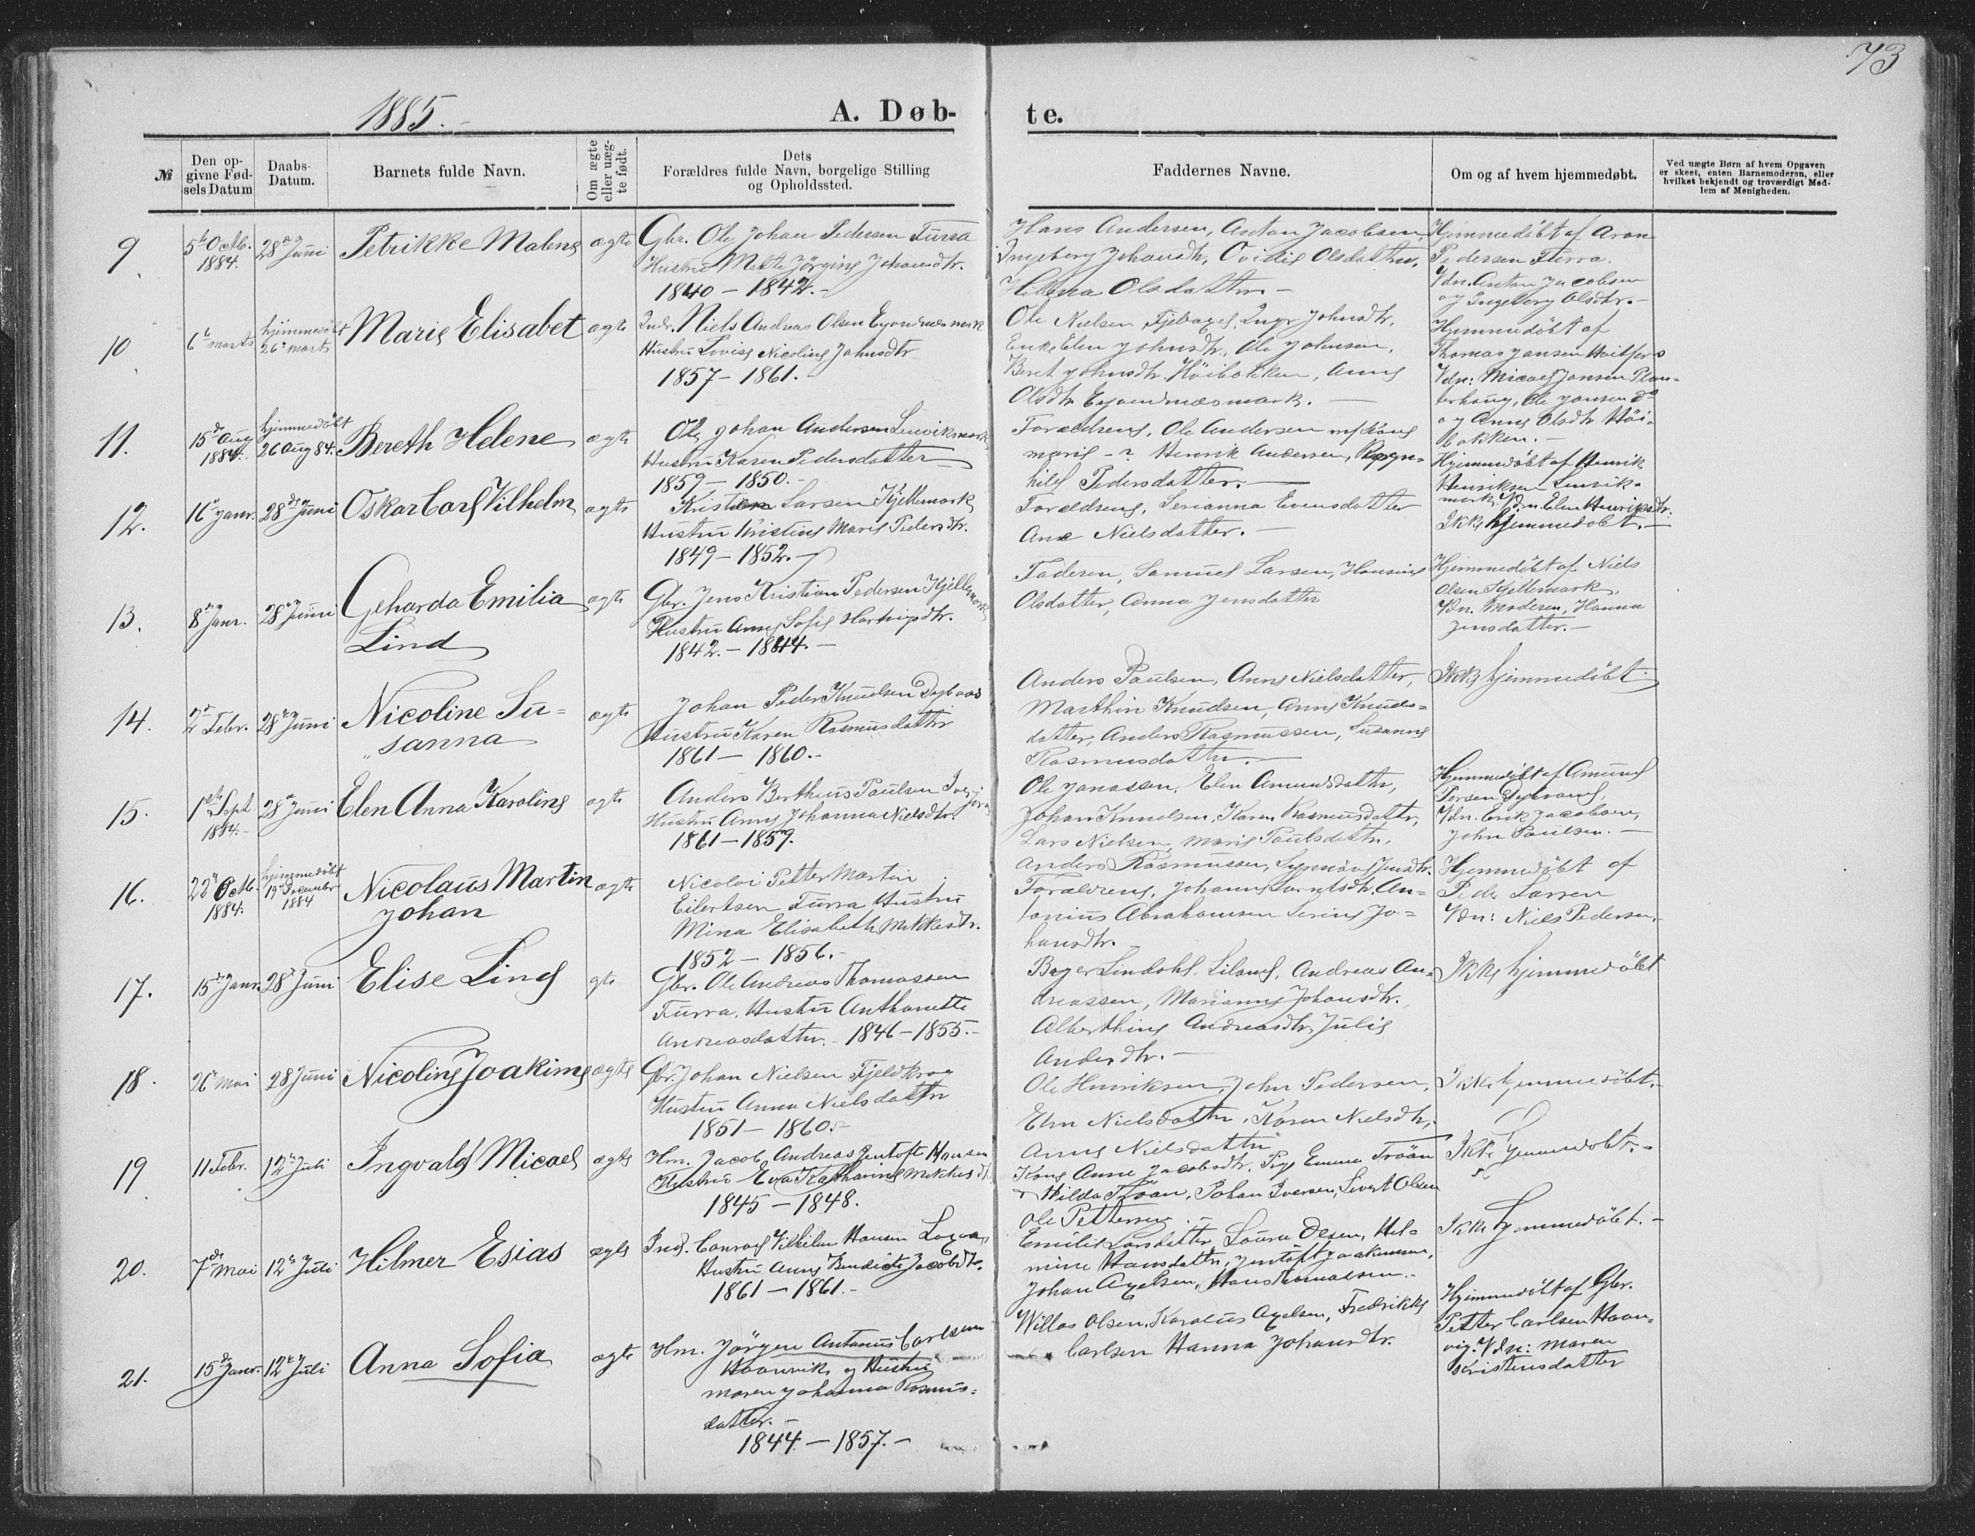 73
1885.
A. Døb- te.
№
Den op-
givne Fød-
sels Datum
Daabs-
Datum.
Barnets fulde Navn.
Om ægte
eller uæg-
te født.
Dets
Forældres fulde Navn, borgelige Stilling
og Opholdssted.
Faddernes Navne.
Om og af hvem hjemmedøbt.
Ved uægte Børn af hvem Opgaven
er skeet, enten Barnemoderen, eller
hvilket bekjendt og troværdigt Med-
lem af Menigheden.
9
5 Octb.
1884.
28 Juni
Petrikke Malene
ægte
Gbr. Ole Johan Pedersen Furra
Hustru Mette Jørgine Johansdtr.
1840 – 1842.
Hans Andersen, Antan Jacobsen,
Ingeborg Johansdtr, Ovidie Olsdatter,
Helena Olsdatter. –
Hjemmedøbt af Aron
Pedersen Furra.
Vdn. Antan Jacobsen
og Ingeborg Olsdtr. –
10
6 marts
hjemmedøbt
26 marts
Marie Elisabet
ægte
Indr. Niels Andreas Olsen
Hustru Lovise Nicoline Johnsdtr
1857 – 1861.
Ole Nielsen Johnsdtr,
Enke Elen Johnsdtr, Ole Johnsen,
Beret Johnsdtr. Høibakken, Anne
Olsdtr
Hjemmedøbt af
Thomas Jansen
Vdn: Micael Jansen Plan-
terhaug, Ole Jansen do
og Anne Olsdtr Høi-
bakken. –
11.
15 Aug
1884.
hjemmedøbt
26 Aug 84.
Bereth Helene
ægte
Ole Johan Andersen
Hustru Karen Pedersdatter
1859 – 1850. –
Forældrene, Ole Andersen
Henrik Andersen, Ragn-
hild Pedersdatter. –
Hjemmedøbt af Henrik
Henriksen
Vdn. Elen Henriksdtr.
12.
16 Janr.
28 Juni
Oskar Carl Vilhelm
ægte
Kristen Larsen Kjellemark
Hustru Kristine Marie Pedersdtr.
1849 – 1852. –
Forældrene, Serianna Evensdatter
Ane Nielsdatter. –
Ikke hjemmedøbt. –
13.
8 Janr.
28 Juni
Geharda Emilia
Lind
ægte
Gbr. Jens Kristian Pedersen Kjellemark
Hustru Anne Sofie Hartvigsdtr.
1842. – 1844. –
Faderen, Samuel Larsen, Hansine
Olsdatter, Anna Jensdatter
Hjemmedøbt af Niels
Olsen Kjellemark,
Vdn. Moderen, Hanna
Jensdatter. –
14.
2 Febr.
28 Juni
Nicoline Su-
sanna
ægte
Johan Peder Knudsen
Hustru Karen Rasmusdatter
1861 – 1860. –
Anders Paulsen, Anne Nielsdatter,
Marthin Knudsen, Anne Knuds-
datter, Anders Rasmussen, Susanne
Rasmusdatter. –
Ikke hjemmedøbt.
15.
1 Sept
1884. –
28 Juni
Elen Anna Karoline
ægte
Anders Bertheus Paulsen
Hustru Anne Johanna Nielsdtr.
1861 – 1859.
Ole Jonassen, Elen Amundsdatter,
Johan Knudsen, Karen Rasmusdatter,
Lars Nielsen, Marie Paulsdatter,
Anders Rasmussen,
Hjemmedøbt af Amund
Vdn. Erik Jacobsen,
John Paulsen. –
16.
22 Octb.
1884.
hjemmedøbt
19 December
1884
Nicolaus Martin
Johan
ægte
Nicolai Petter Martin
Eilertsen Furra Hustru
Mina Elisabeth Mikkelsdtr.
1852 – 1856. –
Forældrene, Johanne An-
tonius Abrahamsen Serine Jo-
hansdtr.
Hjemmedøbt af
Peder Larsen
Vdn: Niels Pedersen,
17.
15 Janr.
28 Juni
Elise Line
gte
Gbr. Ole Andreas Thomassen
Furra, Hustru Anthonette
Andreasdatter. 1846 – 1855. –
Andreas An-
dreassen, Marianne Johansdtr.
Alberthine Andreasdtr, Julie
Andersdtr. –
Ikke hjemmedøbt
18.
26 Mai
28 Juni
Nicoline Joakime
ægte
Gbr. Johan Nielsen Fjeldkrog
Hustru Anna Nielsdatter
1851 – 1860. –
Ole Henriksen, John Pedersen,
Elen Nielsdatter, Karen Nielsdtr,
Anne Nielsdatter
Ikke hjemmedøbt. –
19
11 Febr.
12 Juli
Ingvald Micael
ægte
Hm. Jacob Andreas Jentoft Hansen
Hustru Eva Katharina Mikkelsdtr
1845 – 1848.
Kone Anne Jacobsdtr. Pige Emma Troan
Hilda Troan, Johan Iversen, Sivert Olsen
Ole Pettersen. –
Ikke hjemmedøbt. –
20.
7 Mai
12 Juli
Hilmer Esias
ægte
Ind. Conrad Vilhelm Hansen
Hustru Anne Bendicte Jacobsdtr.
1861 – 1861. –
Emilie Larsdatter, Laura Olsen, Hel-
mine Hansdatter, Jentoft Joakimsen,
Johan Axelsen,
Ikke hjemmedøbt. –
21.
15 Janr.
12 Juli
Anna Sofia
ægte
Hm. Jørgen Antonius Carlsen
Haanvik og Hustru
Maren Johanna Rasmus-
datter. –
1844 – 1857. –
Willas Olsen, Karolius Axelsen, Fredrikke
Carlsen Hanna Johansdtr.
Hjemmedøbt af Gbr.
Petter Carlsen Haan-
vig. Vdn: Maren
Kristensdatter